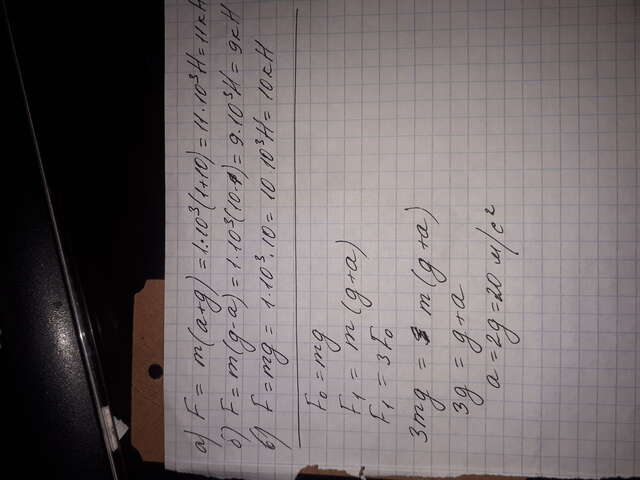 а) F = m(a+g) = 1·10³(1+10) = 11·10³Н = 11кН
б) F = m(g-a) = 1·10³(10-1) = 9·10³Н = 9кН
в) F = mg = 1·10³·10 = 10 10³Н = 10кН
F₀ = mg
F₁ = m(g+a)
F₁ = 3F₀
3mg = m(g+a)
3g = g+a
a = 2g = 20 м/с²